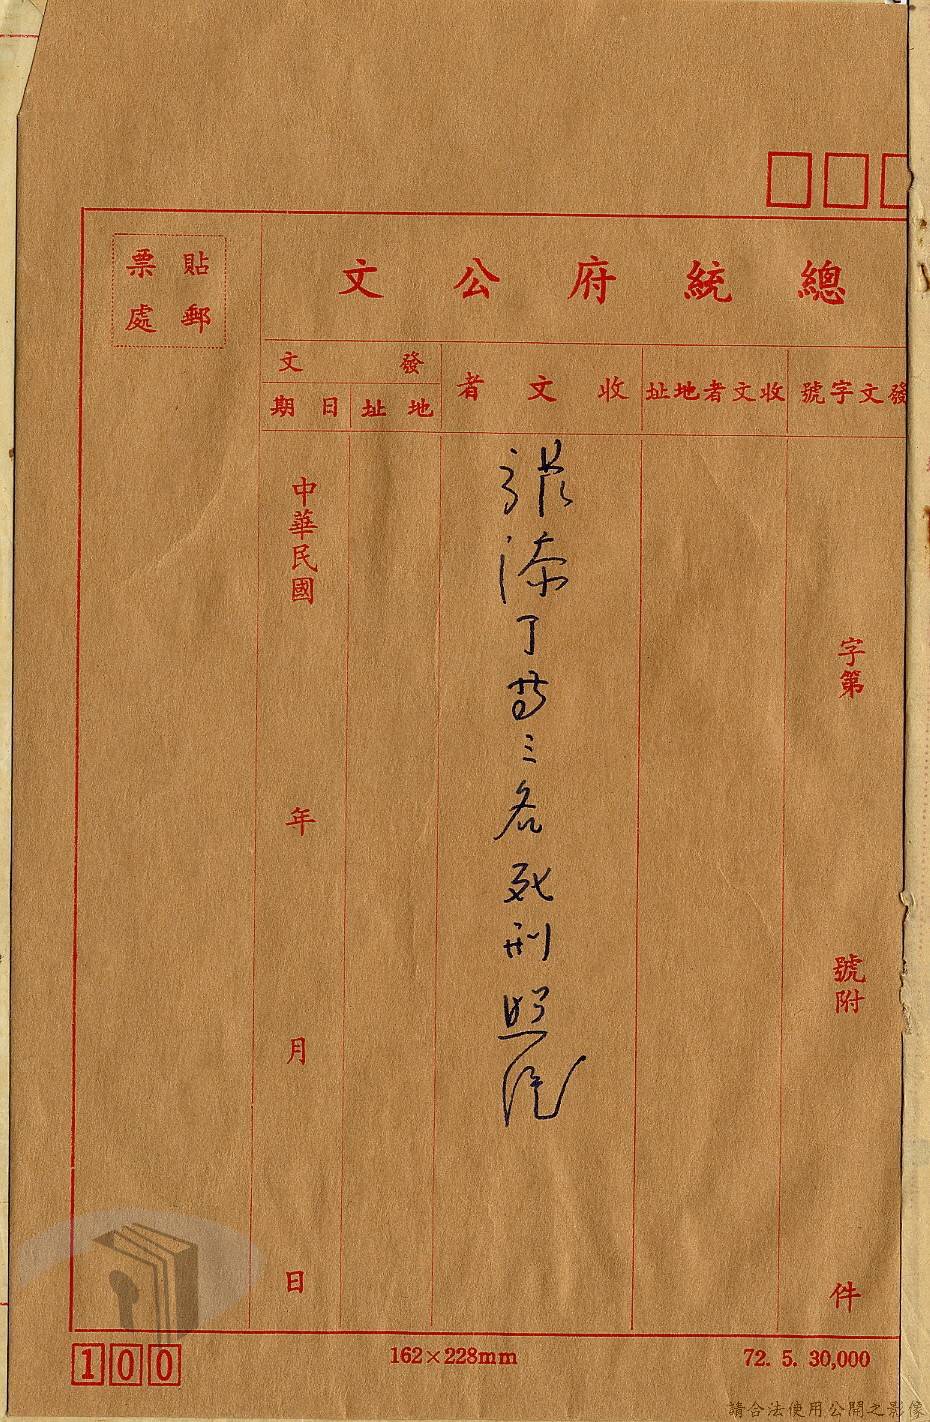 總統府公文
貼郵
票處
發文字號
收文者地址
收文者
發文
地址
日期
字第 號附 件
張添丁等三名死刑照
中華民國 年 月 日
100
162×228mm
72. 5. 30,000
請合法使用公開之影像